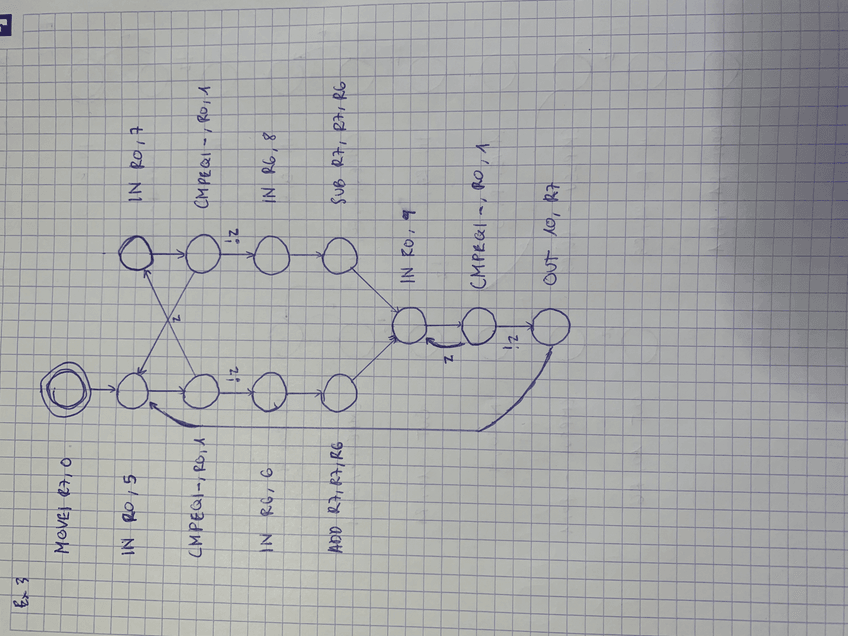 Ex 3
MOVEI R7, 0
IN R0, 5
IN R0, 7
z
CMPEQI -, R0, 1
CMPEQI -, R0, 1
!z
!z
IN R6, 6
IN R6, 8
ADD R7, R7, R6
SUB R7, R7, R6
IN R0, 9
z
CMPEQI -, R0, 1
!z
OUT 10, R7